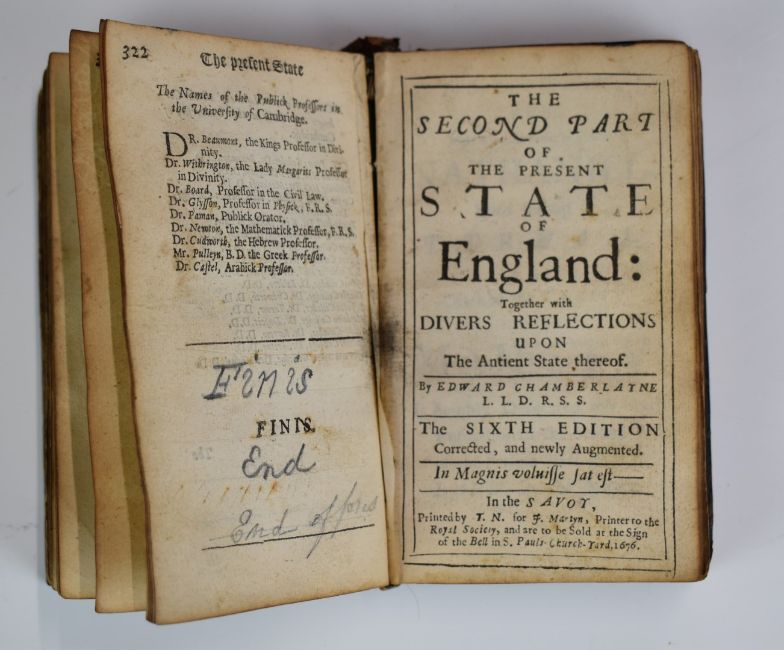 322
The present State
The Names of the Publick Professors in
the University of Cambridge.
DR. Beaumont, the Kings Professor in Divi-
nity.
Dr. Withrington, the Lady Margarits Professor
in Divinity.
Dr. Board, Professor in the Civil Law.
Dr. Glysson, Professor in Physick, F.R.S.
Dr. Paman, Publick Orator.
Dr. Newton, the Mathematick Professor, F.R.S.
Dr. Cudworth, the Hebrew Professor.
Mr. Pulleyn, B.D. the Greek Professor.
Dr. Castel, Arabick Professor.
Finis
FINIS.
End
End of
THE
SECOND PART
OF
THE PRESENT
STATE
OF
England:
Together with
DIVERS REFLECTIONS
UPON
The Antient State thereof.
By EDWARD CHAMBERLAYNE
L. L. D. R. S. S.
The SIXTH EDITION
Corrected, and newly Augmented.
In Magnis voluisse sat est——
In the SAVOY,
Printed by T. N. for J. Martyn, Printer to the
Royal Society, and are to be Sold at the Sign
of the Bell in S. Pauls-Church-Yard, 1676.